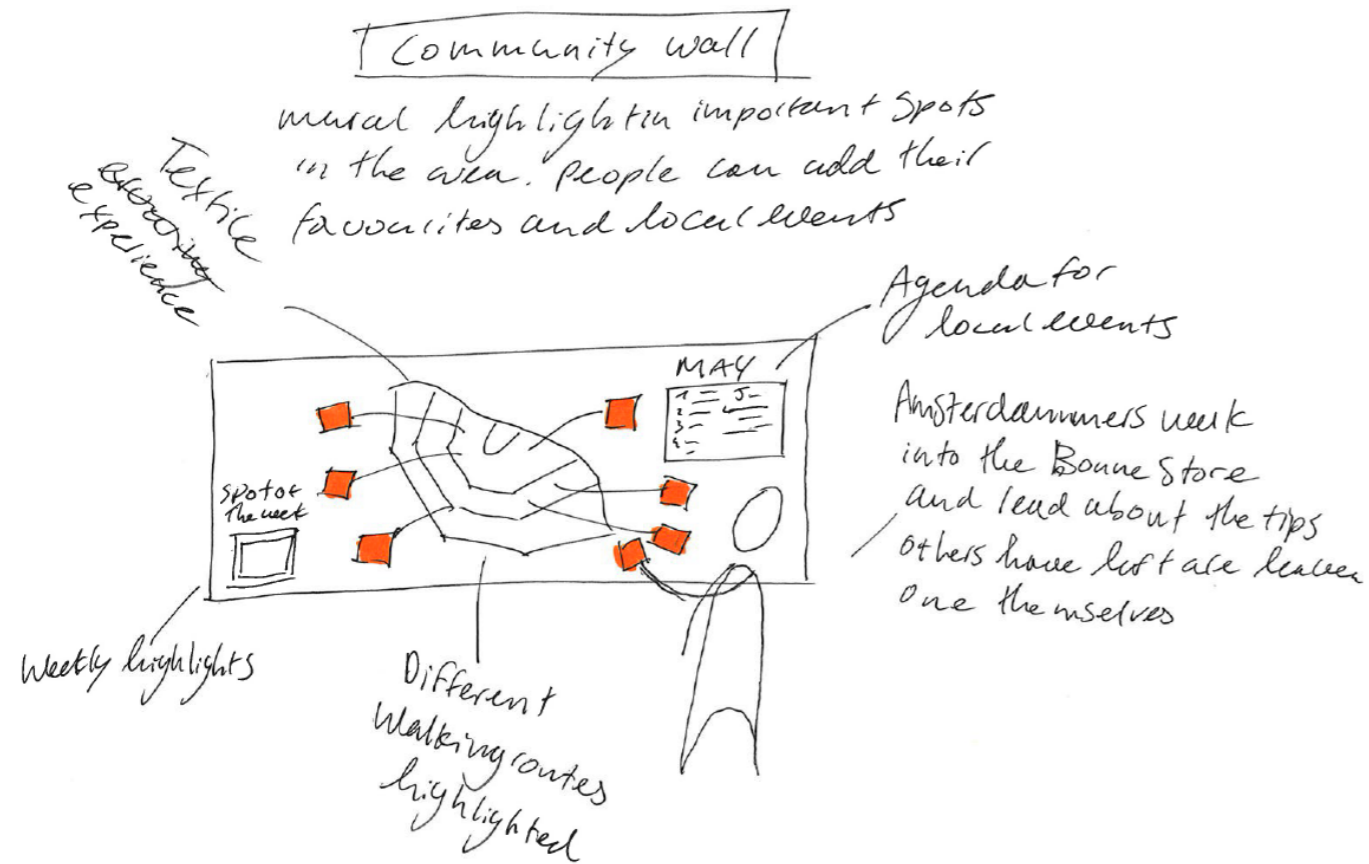 Community wall
mural highlightin important spots
in the area. People can add their
favourites and local events
Textile
experience
Agenda for
local events
MAY
1
2
3
4
Amsterdammers walk
into the Bonne Store
and read about the tips
others have left are leaven
one themselves
spot of
the week
Weekly highlights
Different
Walking routes
highlighted